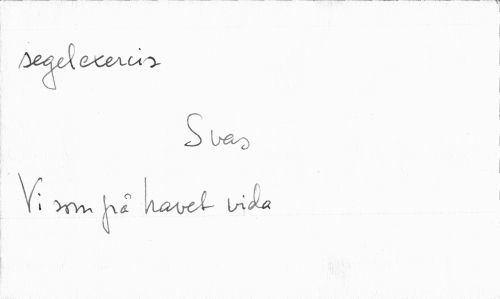 segelexercis
Svas
Vi som på havet vida